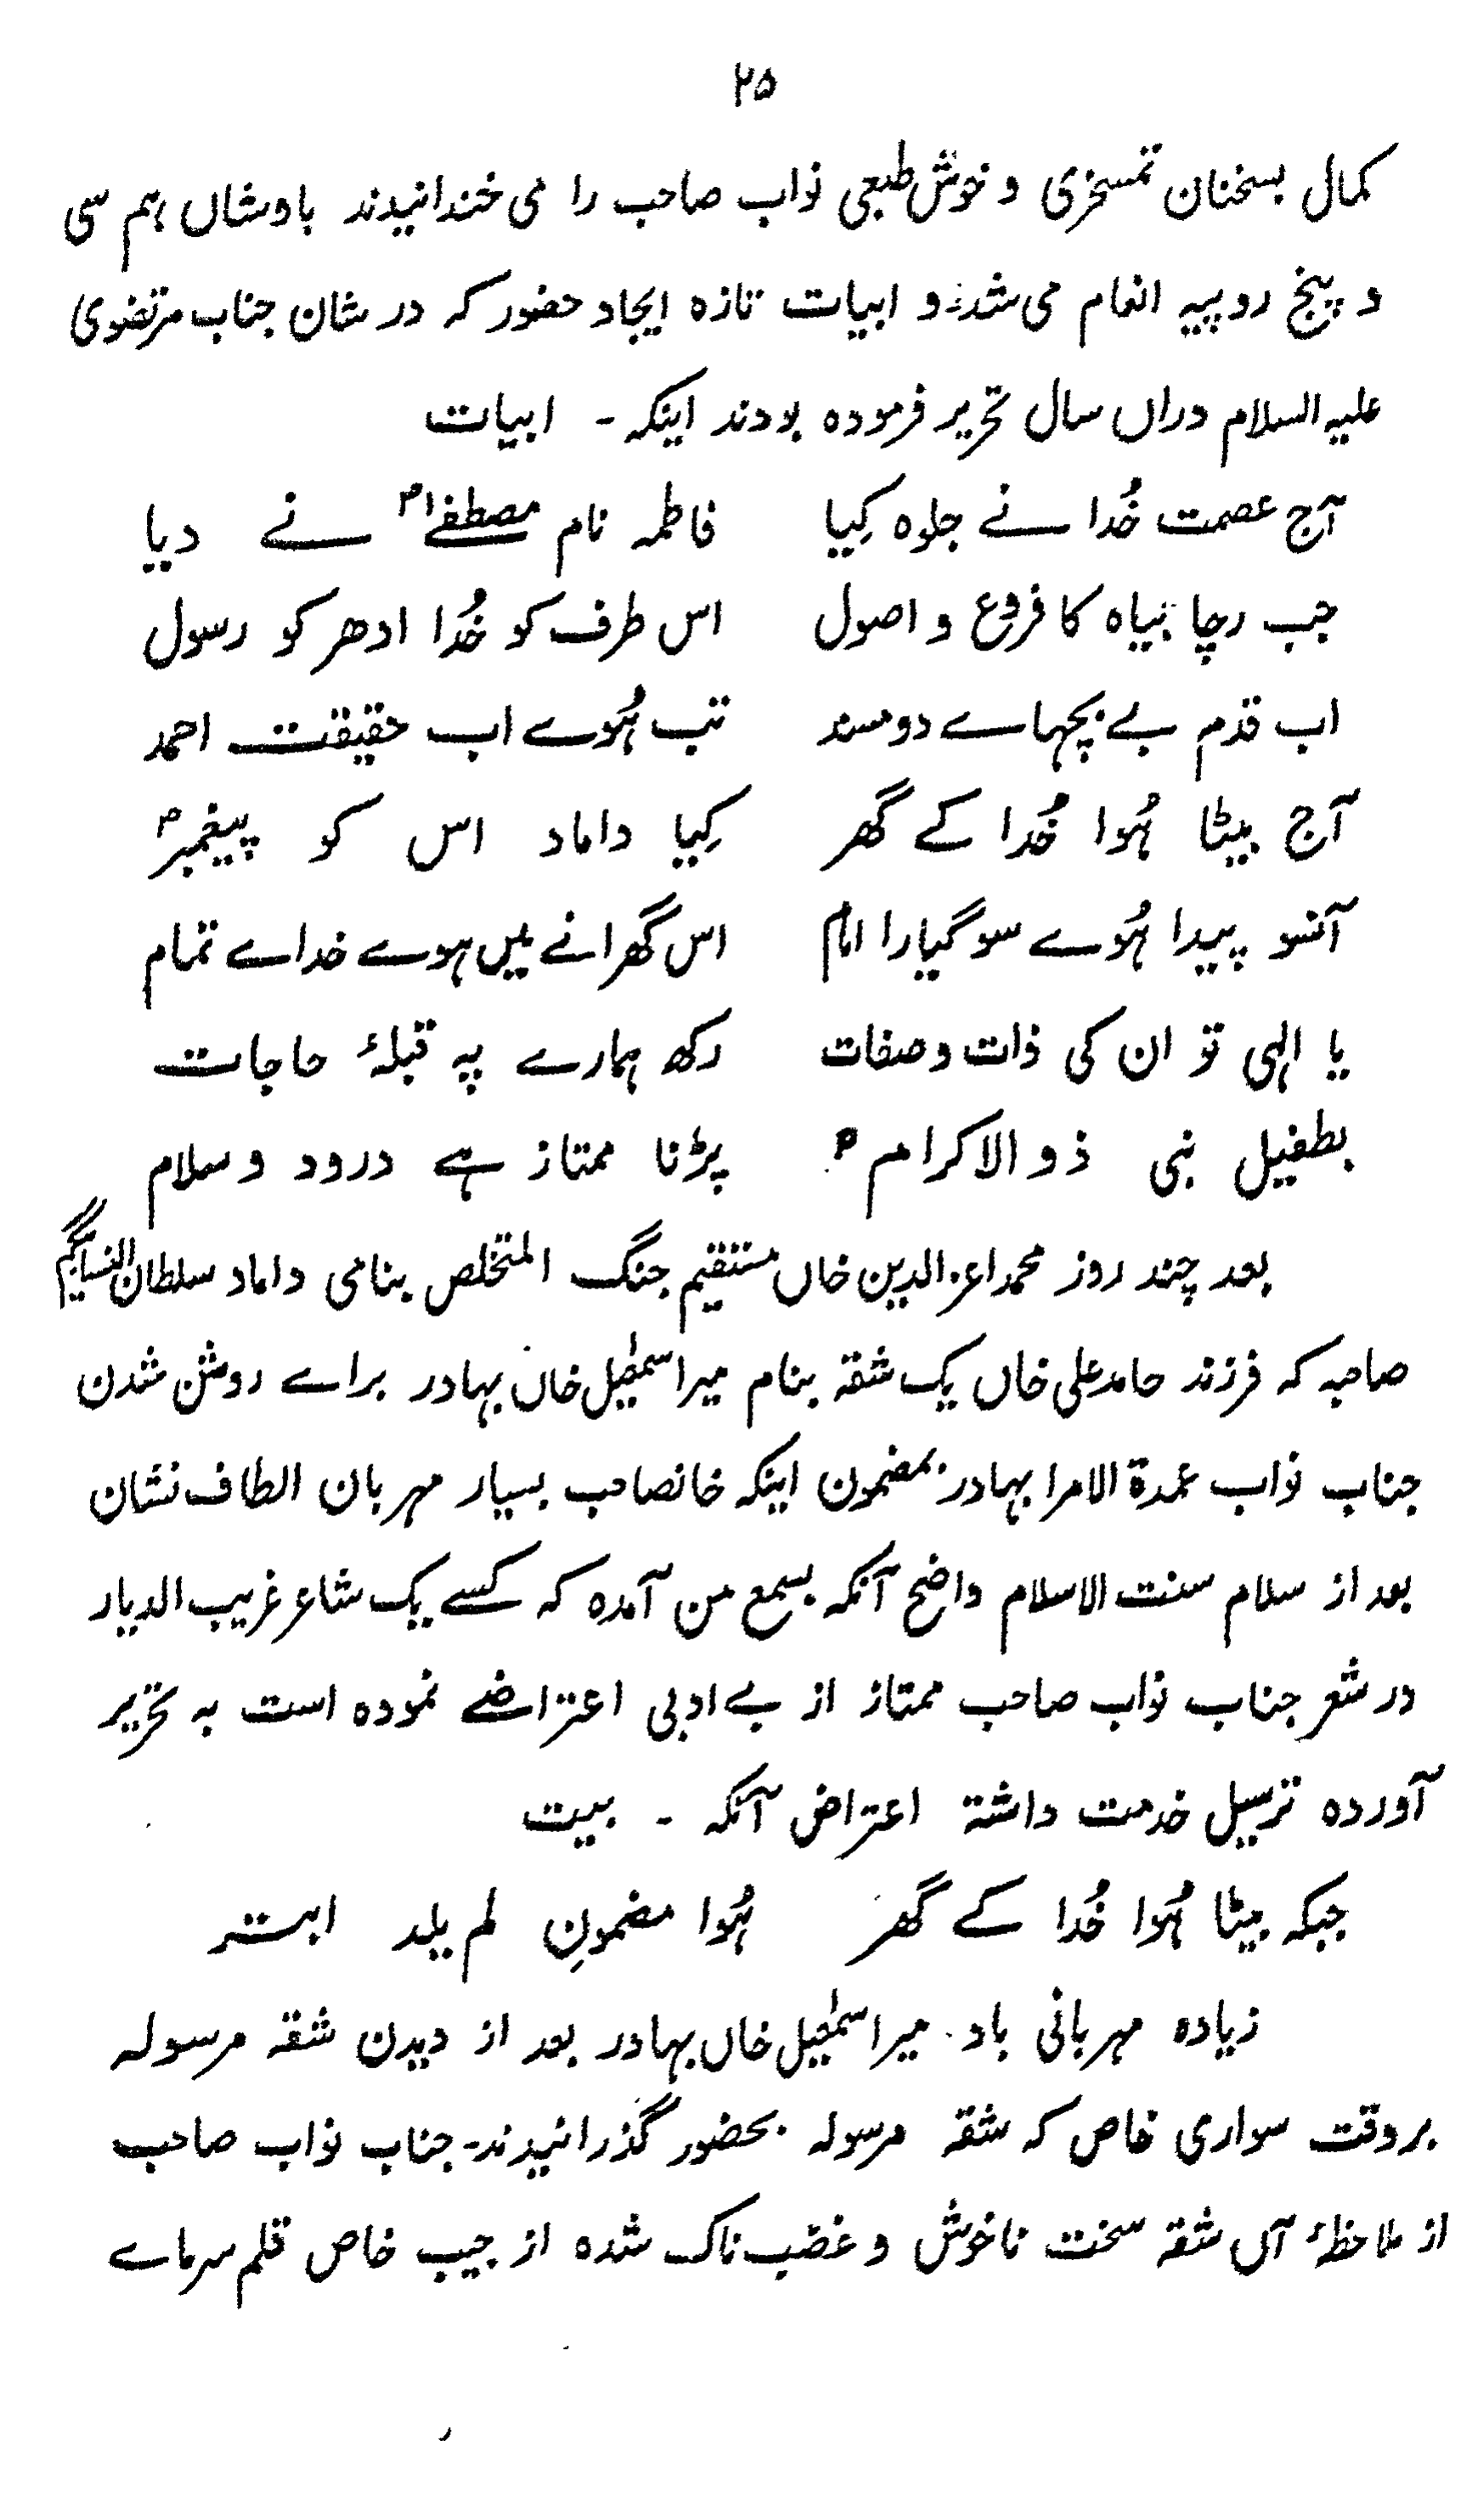 ۲۵
کمال بسخنان تمسخری و خوش طبعی نواب صاحب را می خندانیدند باوشاں ہم سی
و پنج روپیہ انعام می شد و ابیات تازہ ایجاد حضور کہ در شان جناب مرتضوی
علیہ السلام دراں سال تحریر فرمودہ بودند اینکہ ۔ ابیات
آج عصمت خُدا نے جلوہ کِیا فاطمہ نام مصطفےٰؐ نے دیا
جب رچا بیاہ کا فروع و اصول اس طرف کو خُدا ادھر کو رسول
اب قدم بے بچھاے دو مسند تب ہُوے اب حقیقت احمد
آج بیٹا ہُوا خُدا کے گھر کِیا داماد اس کو پیغمبرؐ
آنسو پیدا ہُوے سو گیارا امام اس گھرانے میں ہوے خداے تمام
یا الہی تو ان کی ذات و صفات رکھ ہمارے پہ قبلۂ حاجات
بطفیل نبی ذو الاکرامؐ پڑنا ممتاز ہے درود و سلام
بعد چند روز محمد اعز الدین خاں مستقیم جنگ المتخلص بنامی داماد سلطان النسا بیگم
صاحبہ کہ فرزند حامد علی خاں یک شقہ بنام میر اسمٰعیل خاں بہادر براے روشن شدن
جناب نواب عمدۃ الامرا بہادر بمضمون اینکہ خانصاحب بسیار مہربان الطاف نشان
بعد از سلام سنت الاسلام واضح آنکہ بسمع من آمدہ کہ کسے یک شاعر غریب الدیار
در شعر جناب نواب صاحب ممتاز از بے ادبی اعتراضے نمودہ است بہ تحریر
آوردہ ترسیل خدمت داشتہ اعتراض آنکہ ۔ بیت
جبکہ بیٹا ہُوا خُدا کے گھر ہُوا مضمونِ لم یلد ابتر
زیادہ مہربانی باد۔ میر اسمٰعیل خاں بہادر بعد از دیدن شقہ مرسولہ
بر وقت سواری خاص کہ شقہ مرسولہ بحضور گذرانیدند۔ جناب نواب صاحب
از ملاحظۂ آں شقہ سخت ناخوش و غضب ناک شدہ از جیب خاص قلم سرماے